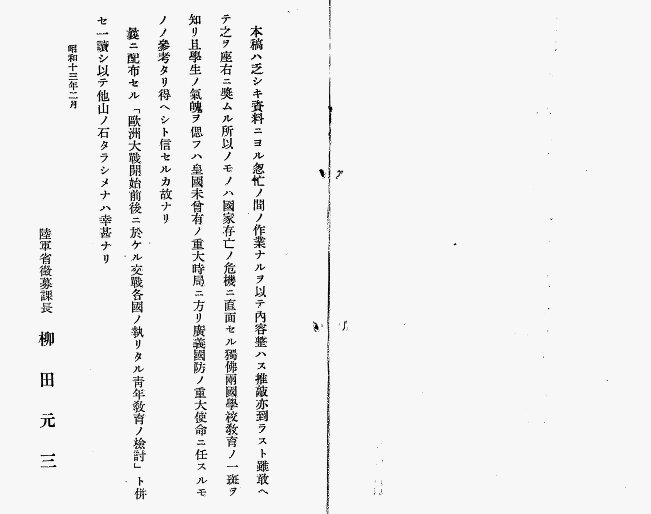 本稿ハ乏シキ資料ニヨル怱忙ノ間ノ作業ナルヲ以テ內容整ハス推敲亦到ラスト雖敢ヘ
テ之ヲ座右ニ奬ムル所以ノモノハ國家存亡ノ危機ニ直面セル獨佛兩國學校敎育ノ一斑ヲ
知リ且學生ノ氣魄ヲ偲フハ皇國未曾有ノ重大時局ニ方リ廣義國防ノ重大使命ニ任スルモ
ノノ參考タリ得ヘシト信セルカ故ナリ
曩ニ配布セル「歐洲大戰開始前後ニ於ケル交戰各國ノ執リタル靑年敎育ノ檢討」ト併
セ一讀シ以テ他山ノ石タラシメナハ幸甚ナリ
昭和十三年二月
陸軍省徵募課長 柳田元三